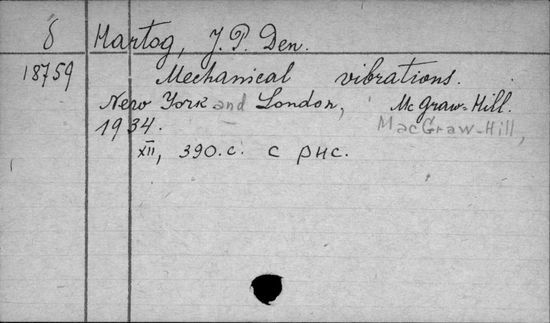 δ Hartog, J. P. Den.
18759 Mechanical vibrations.
New York and London, Mc Graw-Hill.
1934. MacGraw-Hill,
XII, 390.с. с рис.